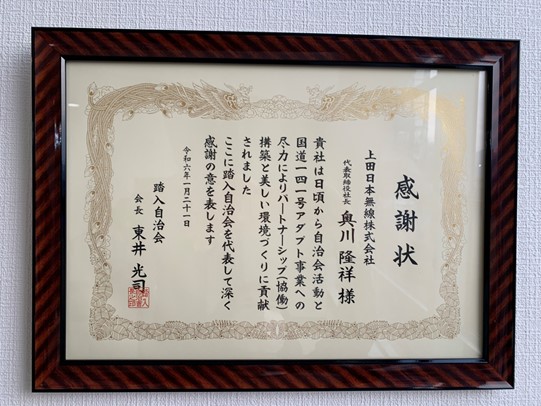 感謝状
上田日本無線株式会社
代表取締役社長 奥川 隆祥 様
貴社は日頃から自治会活動と
国道一四一号アダプト事業への
尽力によりパートナーシップ(協働)
構築と美しい環境づくりに貢献
されました
ここに踏入自治会を代表して深く
感謝の意を表します
令和六年一月二十一日
踏入自治会
会長 東井 光司